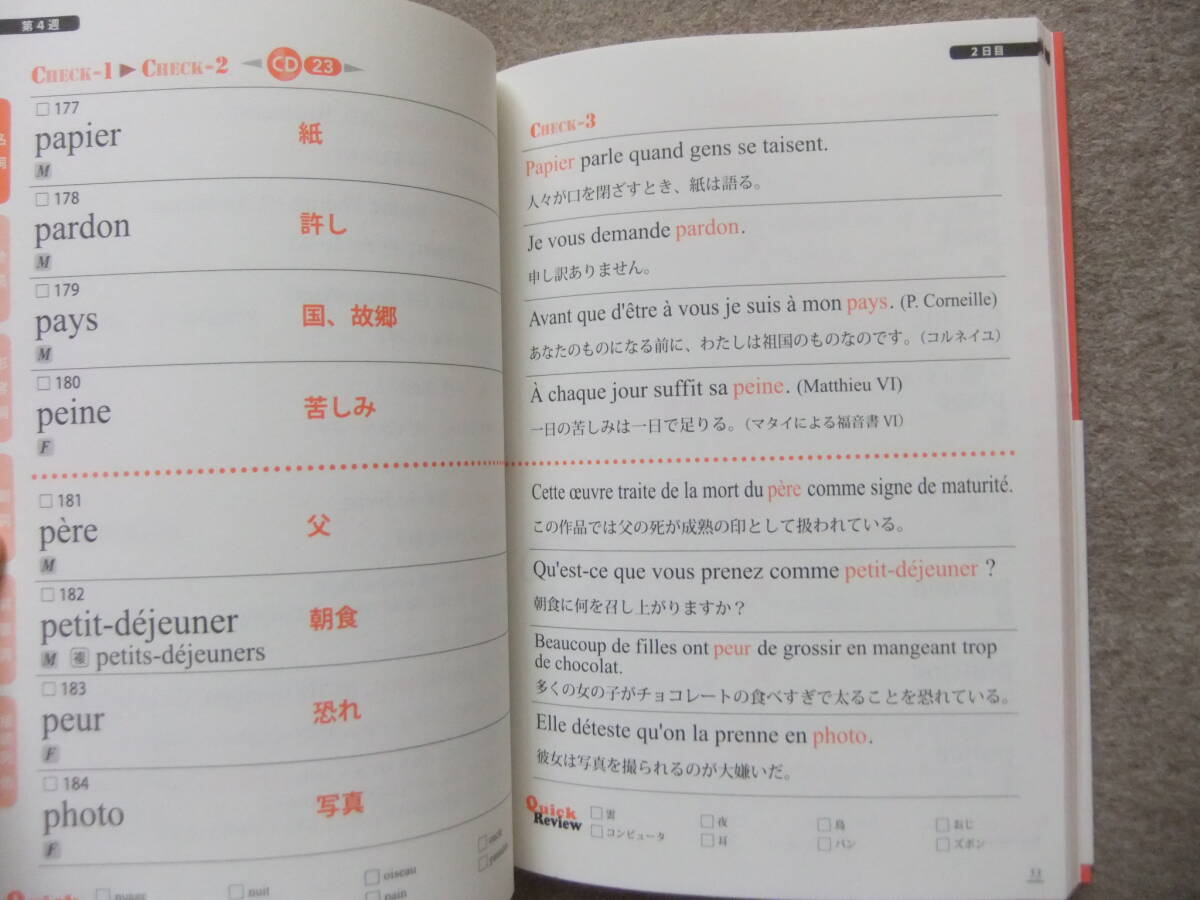 第4週
CHECK-1 ▶ CHECK-2 CD 23
177
papier 紙
M
178
pardon 許し
M
179
pays 国、故郷
M
180
peine 苦しみ
F
181
père 父
M
182
petit-déjeuner 朝食
M 複 petits-déjeuners
183
peur 恐れ
F
184
photo 写真
F
nuit
oiseau
pain
2日目
CHECK-3
Papier parle quand gens se taisent.
人々が口を閉ざすとき、紙は語る。
Je vous demande pardon.
申し訳ありません。
Avant que d'être à vous je suis à mon pays. (P. Corneille)
あなたのものになる前に、わたしは祖国のものなのです。（コルネイユ）
À chaque jour suffit sa peine. (Matthieu VI)
一日の苦しみは一日で足りる。（マタイによる福音書 VI）
Cette œuvre traite de la mort du père comme signe de maturité.
この作品では父の死が成熟の印として扱われている。
Qu'est-ce que vous prenez comme petit-déjeuner ?
朝食に何を召し上がりますか？
Beaucoup de filles ont peur de grossir en mangeant trop
de chocolat.
多くの女の子がチョコレートの食べすぎで太ることを恐れている。
Elle déteste qu'on la prenne en photo.
彼女は写真を撮られるのが大嫌いだ。
Quick Review
雲 夜 鳥 おじ
コンピュータ 耳 パン ズボン
53